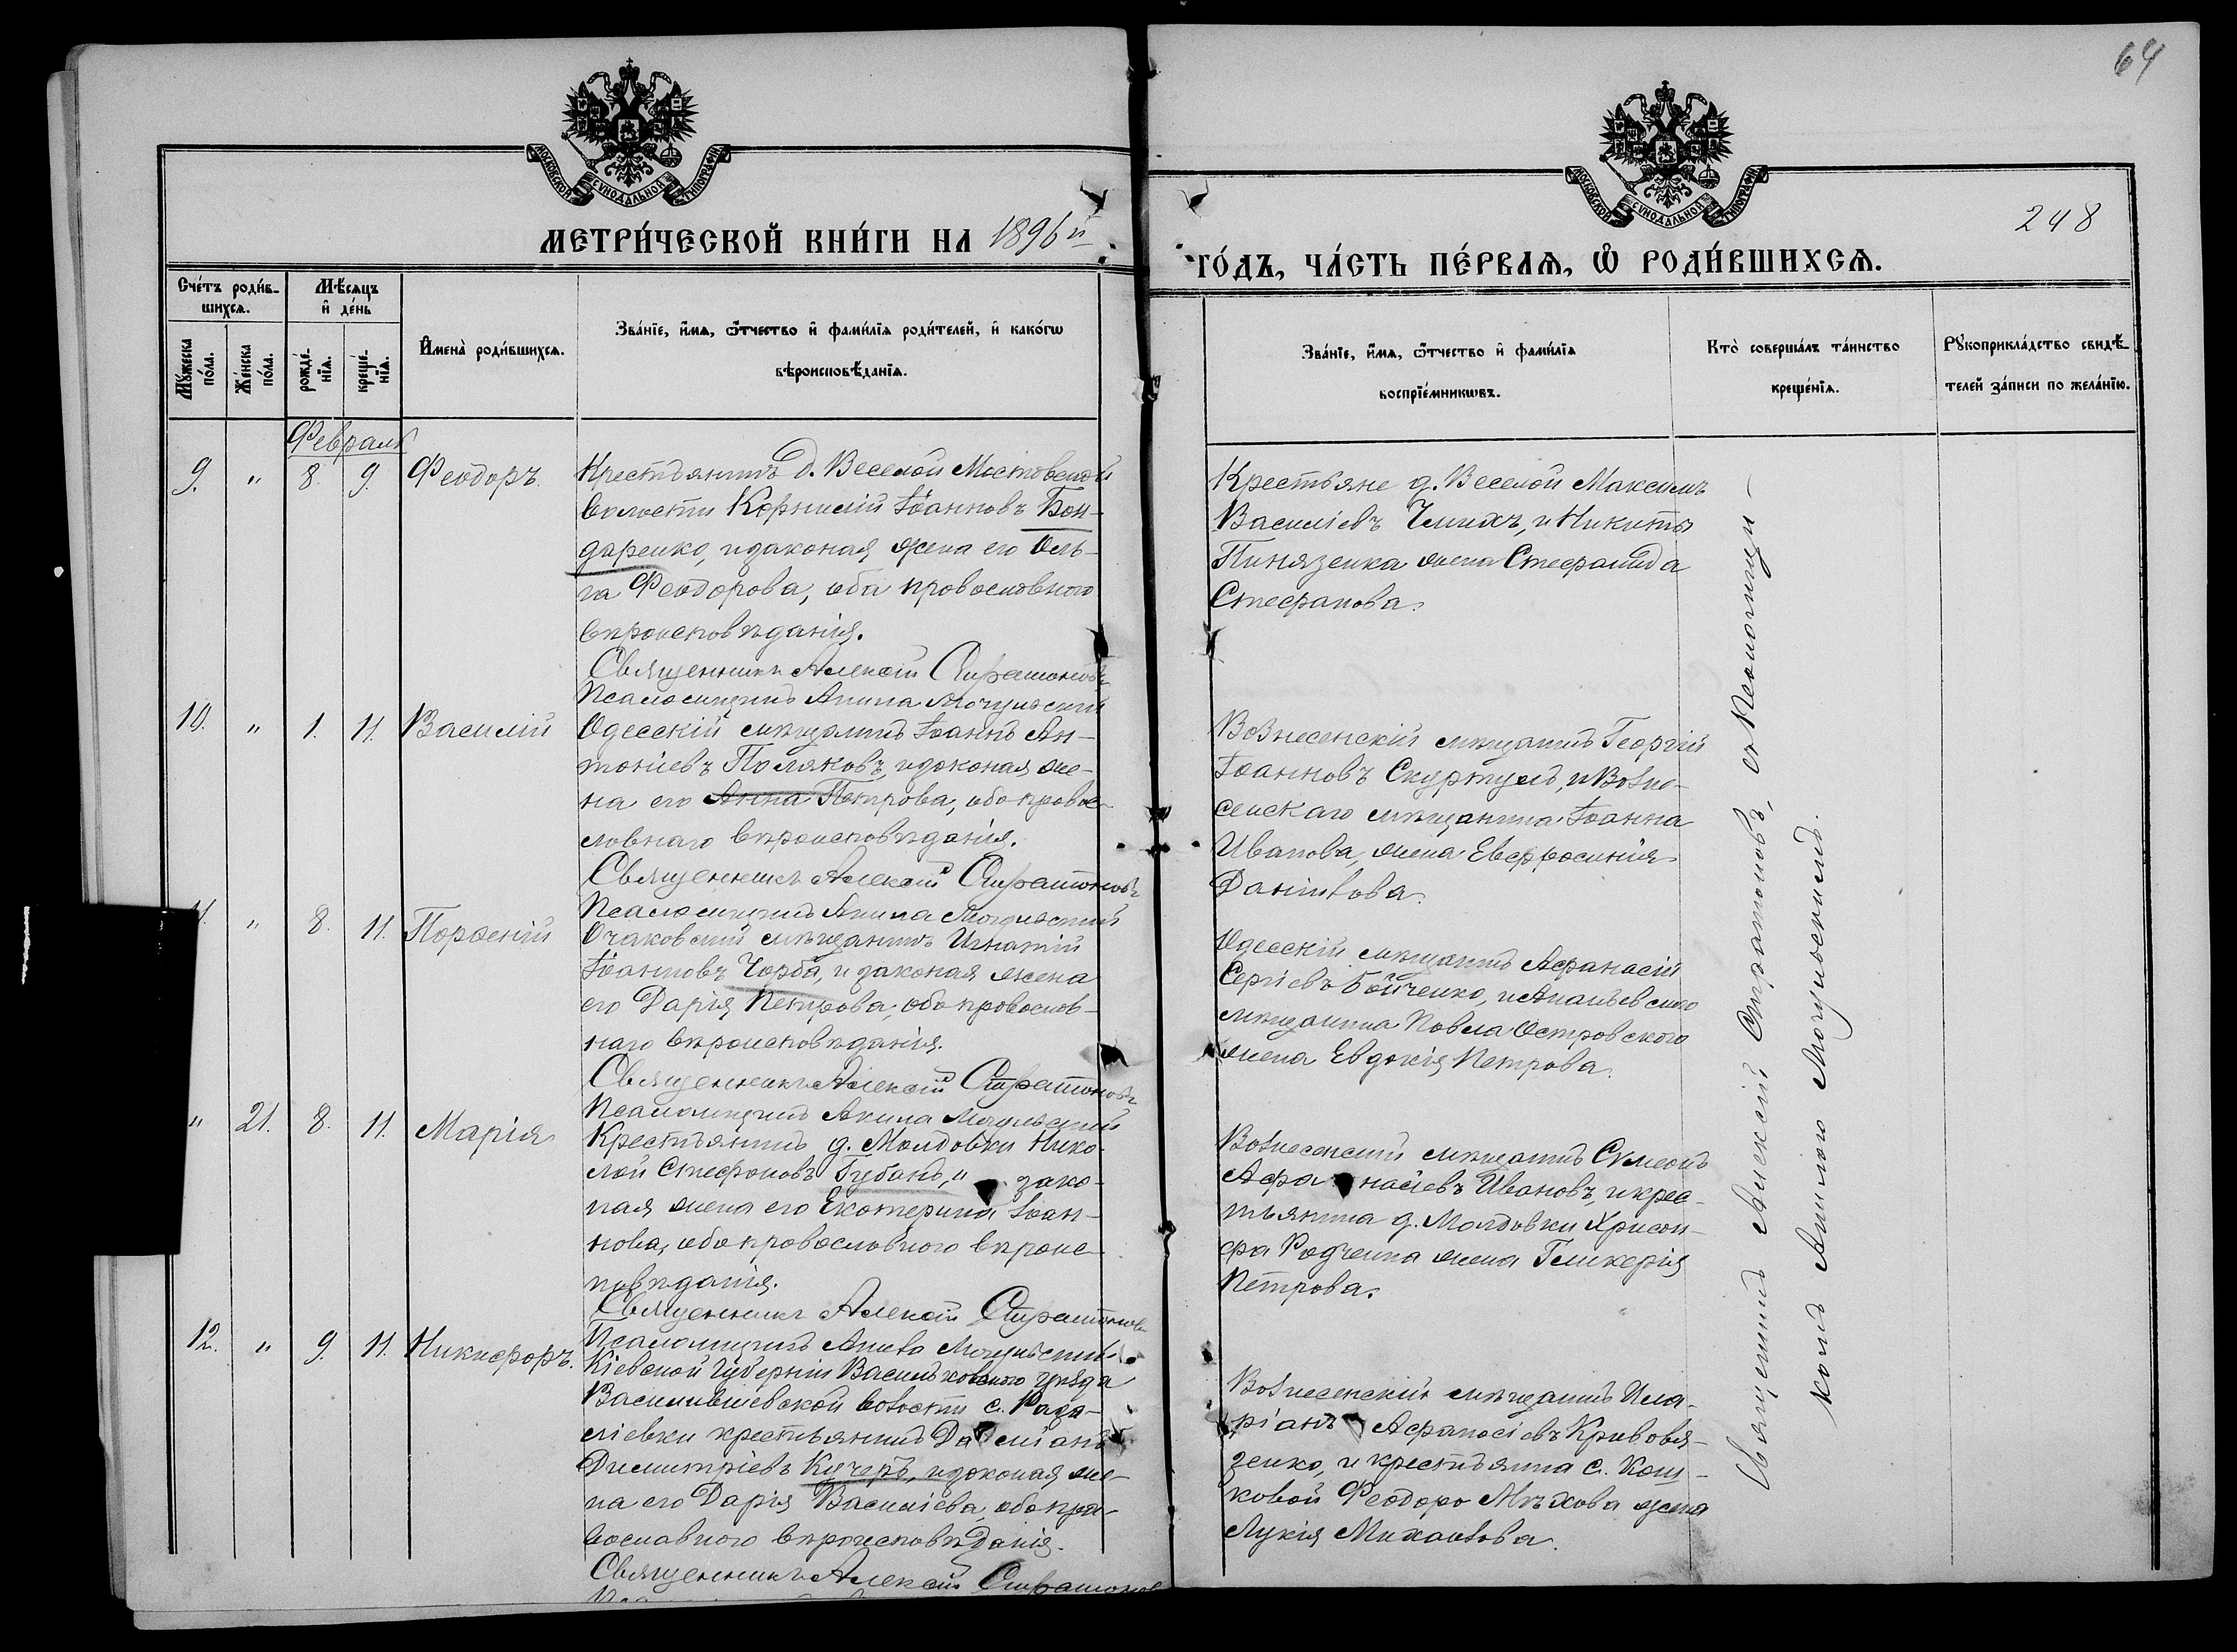 64
МОСКОВСКОЙ СѴНОДАЛЬНОЙ ТИПОГРАФІИ
МОСКОВСКОЙ СѴНОДАЛЬНОЙ ТИПОГРАФІИ
248
МЕТРИ́ЧЕСКОЙ КНИ́ГИ НА 1896й
ГО́ДЪ, ЧА́СТЬ ПЕ́РВАѦ, Ѡ РОДИ́ВШИХСѦ.
Сче́тъ роди́в-
шихсѧ.
Мꙋ́жеска
по́ла.
Же́нска
по́ла.
Мѣ́сѧцъ
и҆ де́нь
рожде́-
нїѧ.
креще́-
нїѧ.
И҆мена̀ роди́вшихсѧ.
Зва́нїе, и҆́мѧ, ѻ҆́тчество и҆ фами́лїѧ роди́телей, и҆ како́гѡ
вѣроисповѣ́данїѧ.
Зва́нїе, и҆́мѧ, ѻ҆́тчество и҆ фами́лїѧ
воспрїе́мникѡвъ.
Кто̀ соверша́лъ та́инство
креще́нїѧ.
Рꙋкоприкла́дство свидѣ́-
телей за́писи по жела́нїю.
Февраль
9. " 8. 9. Феодоръ.
Крестьянинъ д. Веселой Мостовской
волости Корнилій Іоанновъ Бон-
даренко, и законая жена его Оль-
га Феодорова, оба провословного
вѣроисповѣданія.
Священникъ Алексій Стратоновъ
Псаломщикъ Акила Могульскій
Крестьяне д. Веселой Максимъ
Василіевъ Чмихъ, и Никиты
Пинязенка жена Стефанида
Стефанова.
10. " 1. 11. Василій
Одесскій мѣщанинъ Іоаннъ Ан-
тоніевъ Поляковъ, и законая же-
на его Анна Петрова, оба провос-
ловнаго вѣроисповѣданія.
Священникъ Алексій Стратоновъ
Псаломщикъ Акила Могульскій
Вознесенскій мѣщанинъ Георгій
Іоанновъ Скуртулъ, и Возне-
сенскаго мѣщанина Іоанна
Иванова, жена Евфросинія
Данилова.
11. " 8. 11. Порфеній
Очаковскій мѣщанинъ Игнатій
Іоанновъ Чорба, и законая жена
его Дарія Петрова, оба провослов-
наго вѣроисповѣданія.
Священникъ Алексій Стратоновъ
Псаломщикъ Акила Могульскій
Одесскій мѣщанинъ Афанасій
Сергіевъ Бойченко, и Ананьевского
мѣщанина Повла Островского
жена Евдокія Петрова.
" 21. 8. 11. Марія
Крестьянинъ д. Молдовки Нико-
лой Стефоновъ Губань, и зако-
ная жена его Екотерина Іоан-
нова, оба провословного вѣроис-
повѣданія.
Священникъ Алексій Стратоновъ
Псаломщикъ Акила Могульскій
Вознесенскій мѣщанинъ Сѵмеонъ
Афанасіевъ Ивановъ, и крес-
тьянина д. Молдовки Хрисон-
фа жена Гликерія
Петрова.
12. " 9. 11. Никифоръ.
Кіевской Губерніи Васильковского уѣзда
волости с.
крестьянинъ Даміанъ
Димитріевъ Кучеръ, и законая же-
на его Дарія Василіева, оба пра-
вославного вѣроисповѣданія.
Священникъ Алексій Стратоновъ
Вознесенскій мѣщанинъ Ила-
ріанъ Афанасіевъ Кривовя-
зенко, и крестьянина с. Кош-
ковой Феодора Мѣхова жена
Лукія Михаилова.
Священникъ Алексій Стратоновъ, съ Псаломщи-
комъ Акилою Могульскимъ.